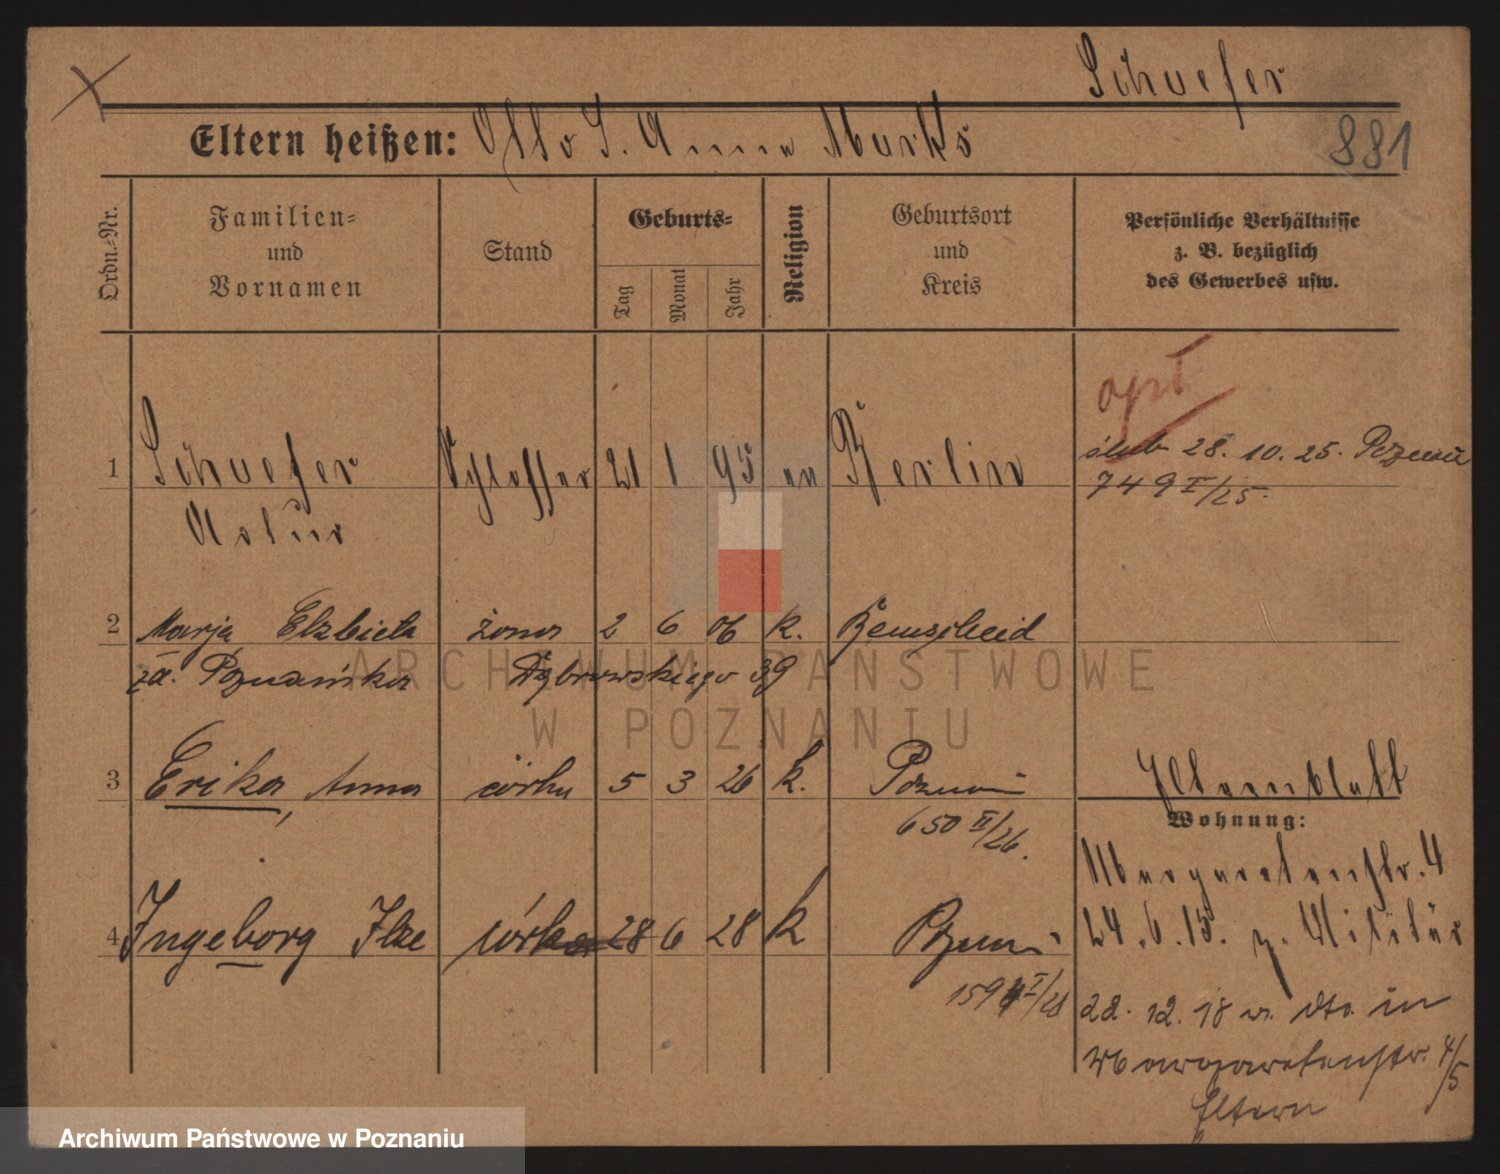 Schaefer
Eltern heißen: Otto S. Anna Marks
881
Ordn.-Nr.
Familien-
und
Vornamen
Stand
Geburts-
Tag
Monat
Jahr
Religion
Geburtsort
und
Kreis
Persönliche Verhältnisse
z. B. bezüglich
des Gewerbes usw.
opt
1 Schaefer Schlosser 21 1 95 ev Berlin
Artur
ślub 28. 10. 25. Poznań
749 I/25.
2 Marja Elżbieta żona 2 6 06 k. Remscheid
zd. Poznańska Dąbrowskiego 39
3 Erika, Anna córka 5 3 26 k. Poznań
650 II/26.
Elternblatt
Wohnung:
Margaretenstr. 4
24. 6. 15. z. Militär
4 Ingeborg Ilze córka 28 6 28 k Poznań
1594 I/28
22. 12. 18 v. dto. in
Margaretenstr. 4/5
Eltern
ARCHIWUM PAŃSTWOWE
W POZNANIU
Archiwum Państwowe w Poznaniu